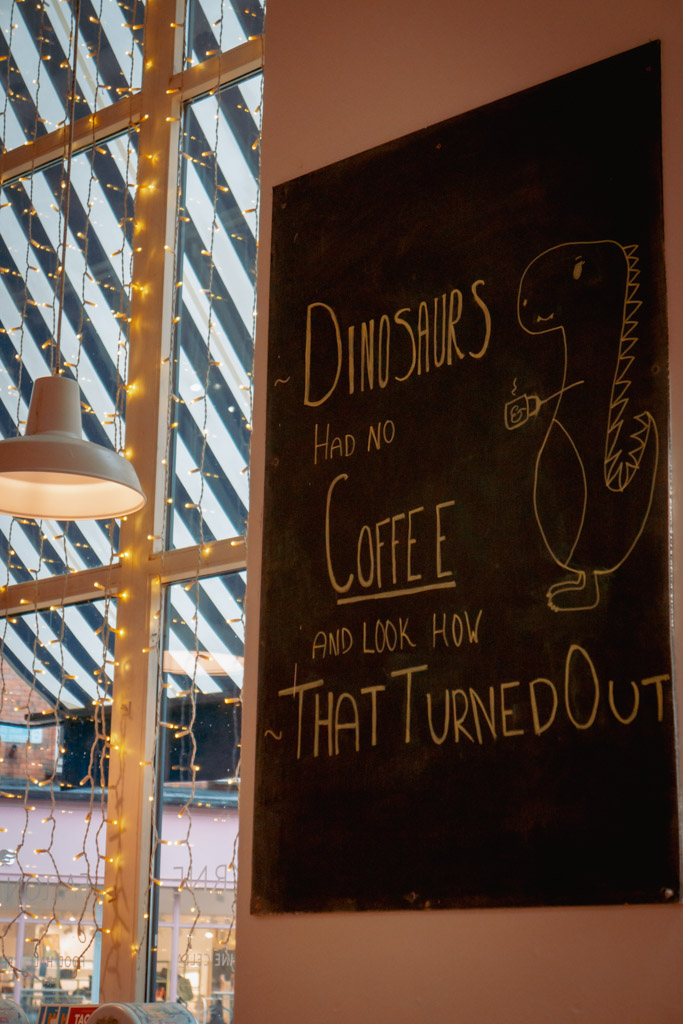 ~ DINOSAURS
HAD NO
COFFEE
AND LOOK HOW
~ THAT TURNED OUT